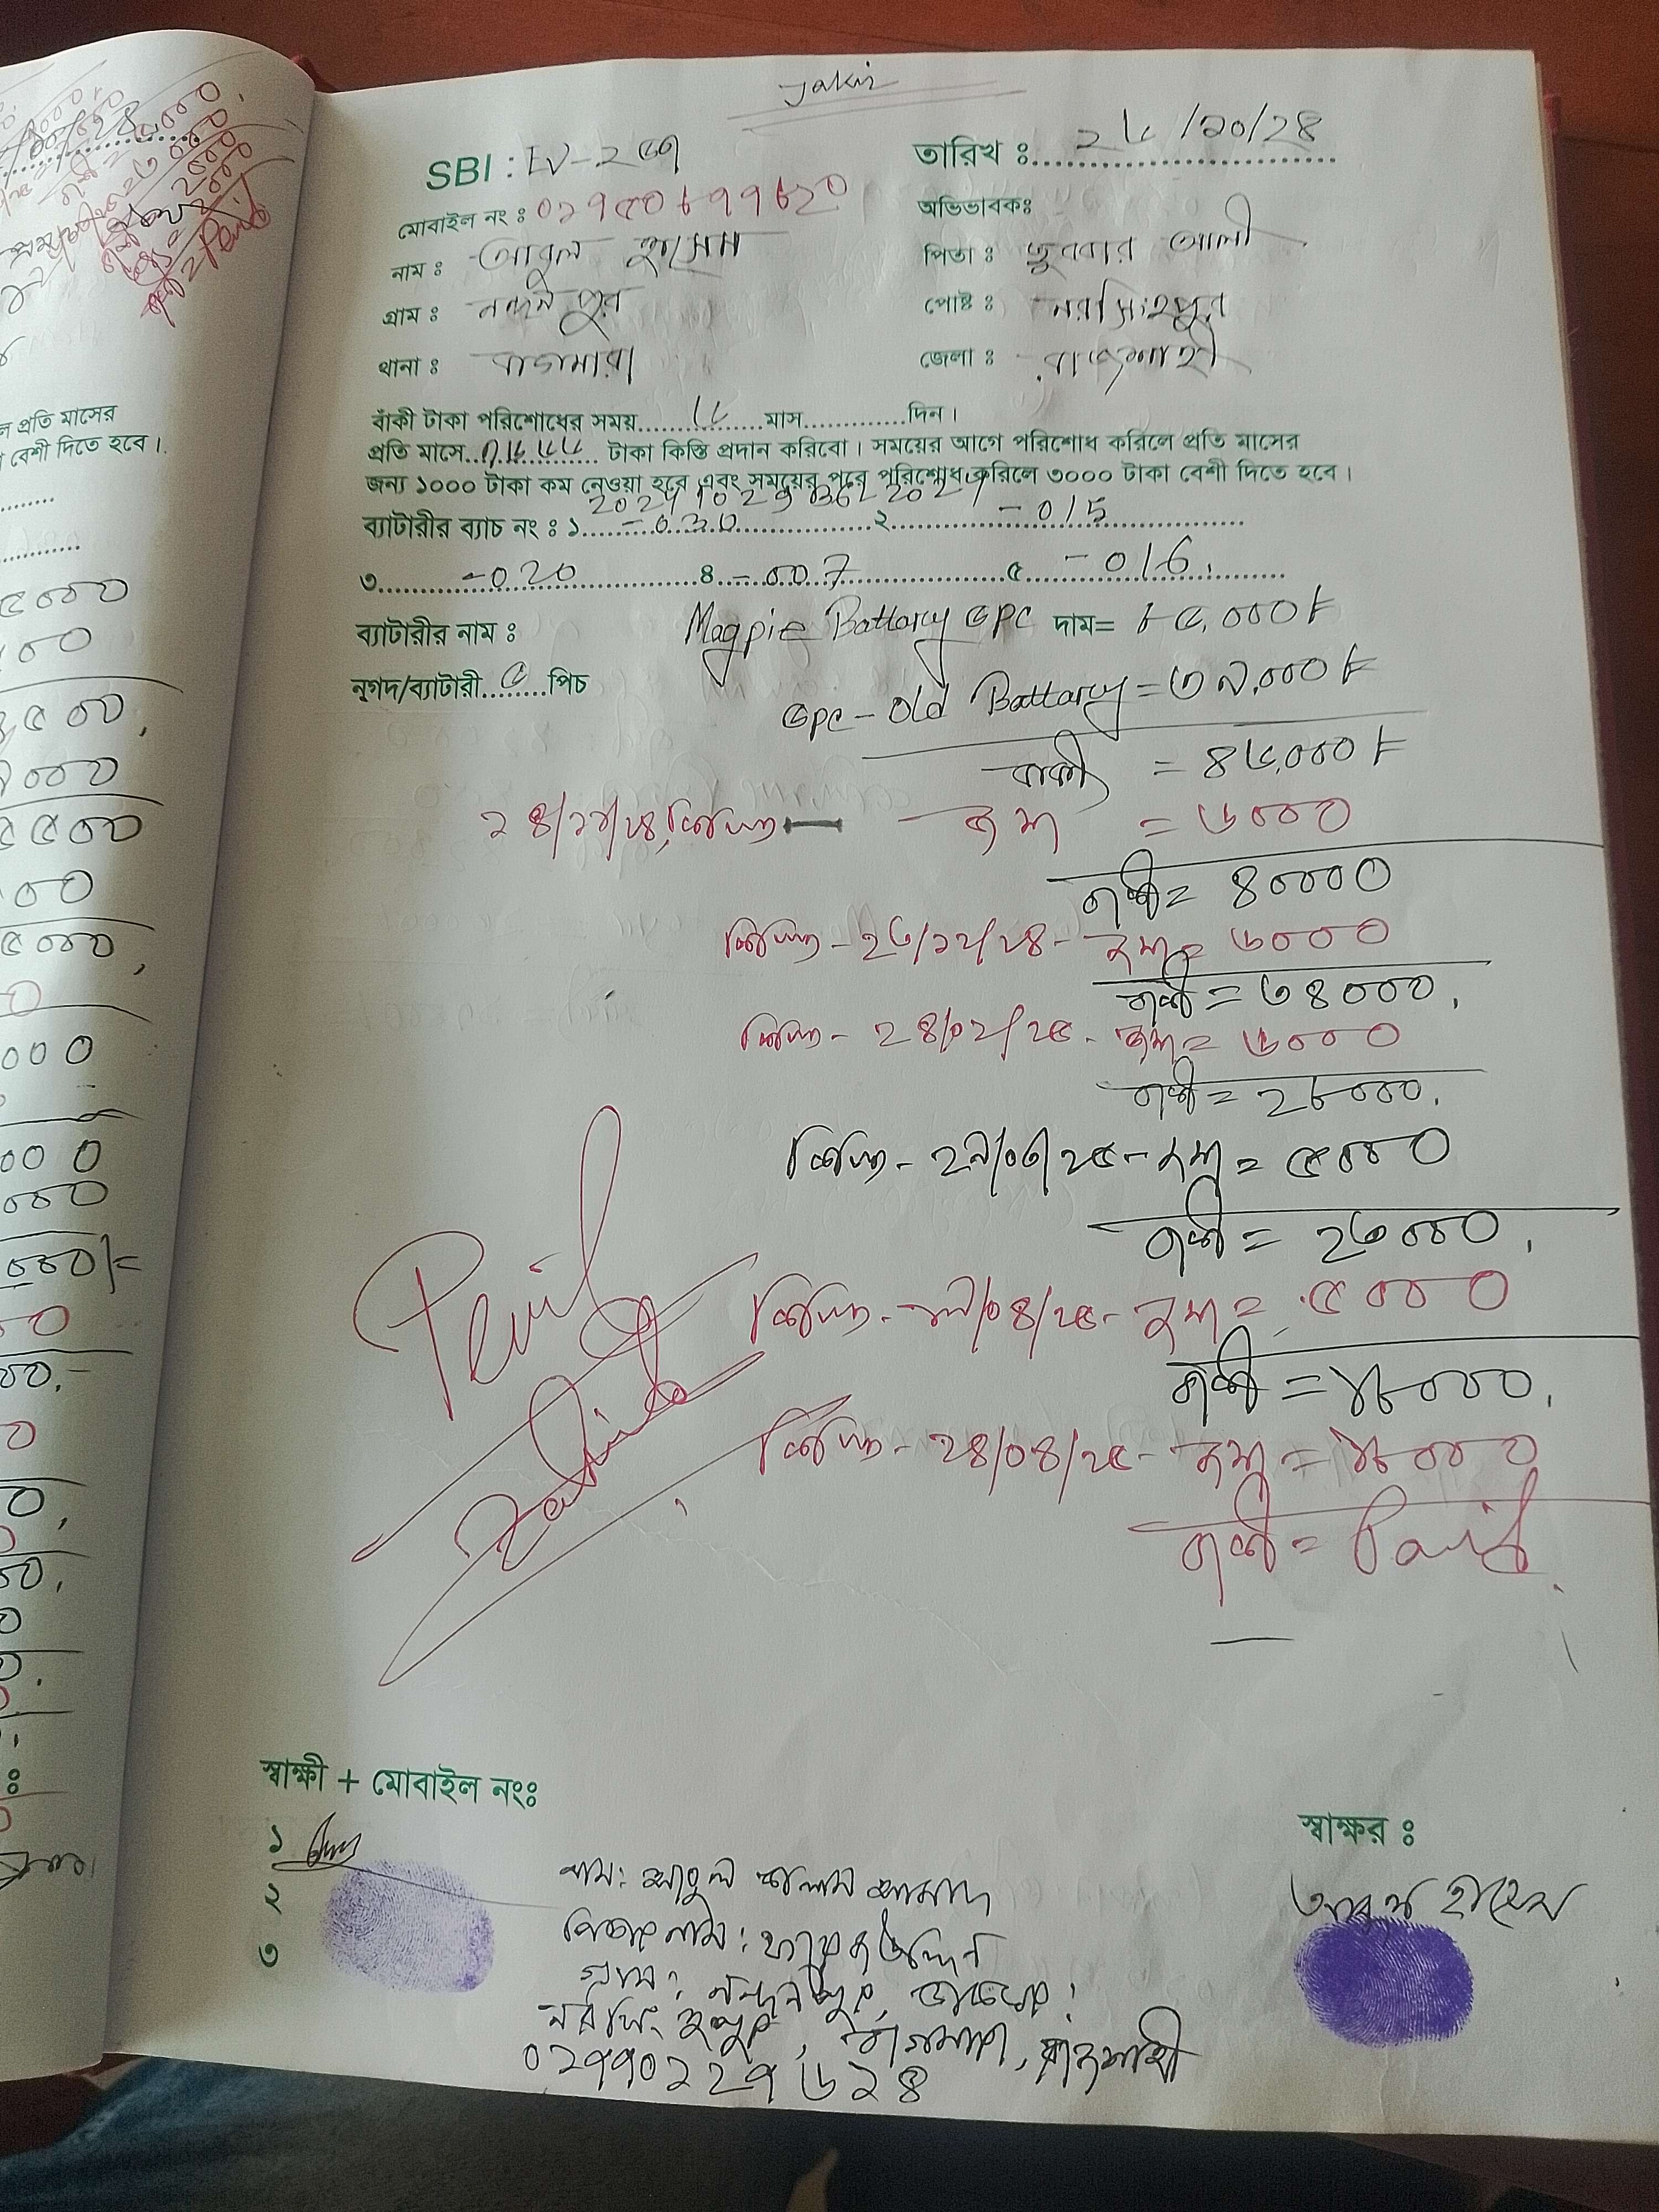 Jakir
SBI : EV-২৫৭
তারিখ ঃ ২৬/১০/২৪
মোবাইল নং ঃ ০১৭৫০৮৭৭৮২০
অভিভাবকঃ
নাম ঃ আবুল হোসেন
পিতা ঃ জুববার আলী
গ্রাম ঃ নন্দনপুর
পোষ্ট ঃ নরসিংহপুর
থানা ঃ বাগমারা
জেলা ঃ রাজশাহী
বাঁকী টাকা পরিশোধের সময়....৬....মাস............দিন।
প্রতি মাসে..৭৬৬৬.. টাকা কিস্তি প্রদান করিবো। সময়ের আগে পরিশোধ করিলে প্রতি মাসের
জন্য ১০০০ টাকা কম নেওয়া হবে এবং সময়ের পরে পরিশোধ করিলে ৩০০০ টাকা বেশী দিতে হবে।
ব্যাটারীর ব্যাচ নং ঃ ১ -030 ২ -015
৩ -020 ৪ -007 ৫ -016
ব্যাটারীর নাম ঃ Magpie Battary ৫PC দাম= ৮৫,০০০৳
নগদ/ব্যাটারী..৫..পিচ
৫pc - Old Battary = ৩৯,০০০৳
বাকী = ৪৬,০০০৳
২৪/১১/২৪, কিস্তি - জমা = ৬০০০
বাকী = ৪০০০০
কিস্তি - ২৩/১২/২৪ - জমা = ৬০০০
বাকী = ৩৪০০০
কিস্তি - ২৪/০২/২৫ - জমা = ৬০০০
বাকী = ২৮০০০
কিস্তি - ২৯/০৩/২৫ - জমা = ৫০০০
বাকী = ২৩০০০
কিস্তি - /০৪/২৫ - জমা = ৫০০০
বাকী = ১৮০০০
কিস্তি - ২৪/০৪/২৫ - জমা = ১৮০০০
বাকী = Paid
Paid
স্বাক্ষী + মোবাইল নংঃ
স্বাক্ষর ঃ
১
২
৩
নাম: আবুল কালাম আজাদ
আবুল হোসেন
পিতার নাম:
গ্রাম: নন্দনপুর, ডাকঘর:
নরসিংহপুর, বাগমারা, রাজশাহী
০১৭৭০২২৭৬২৪